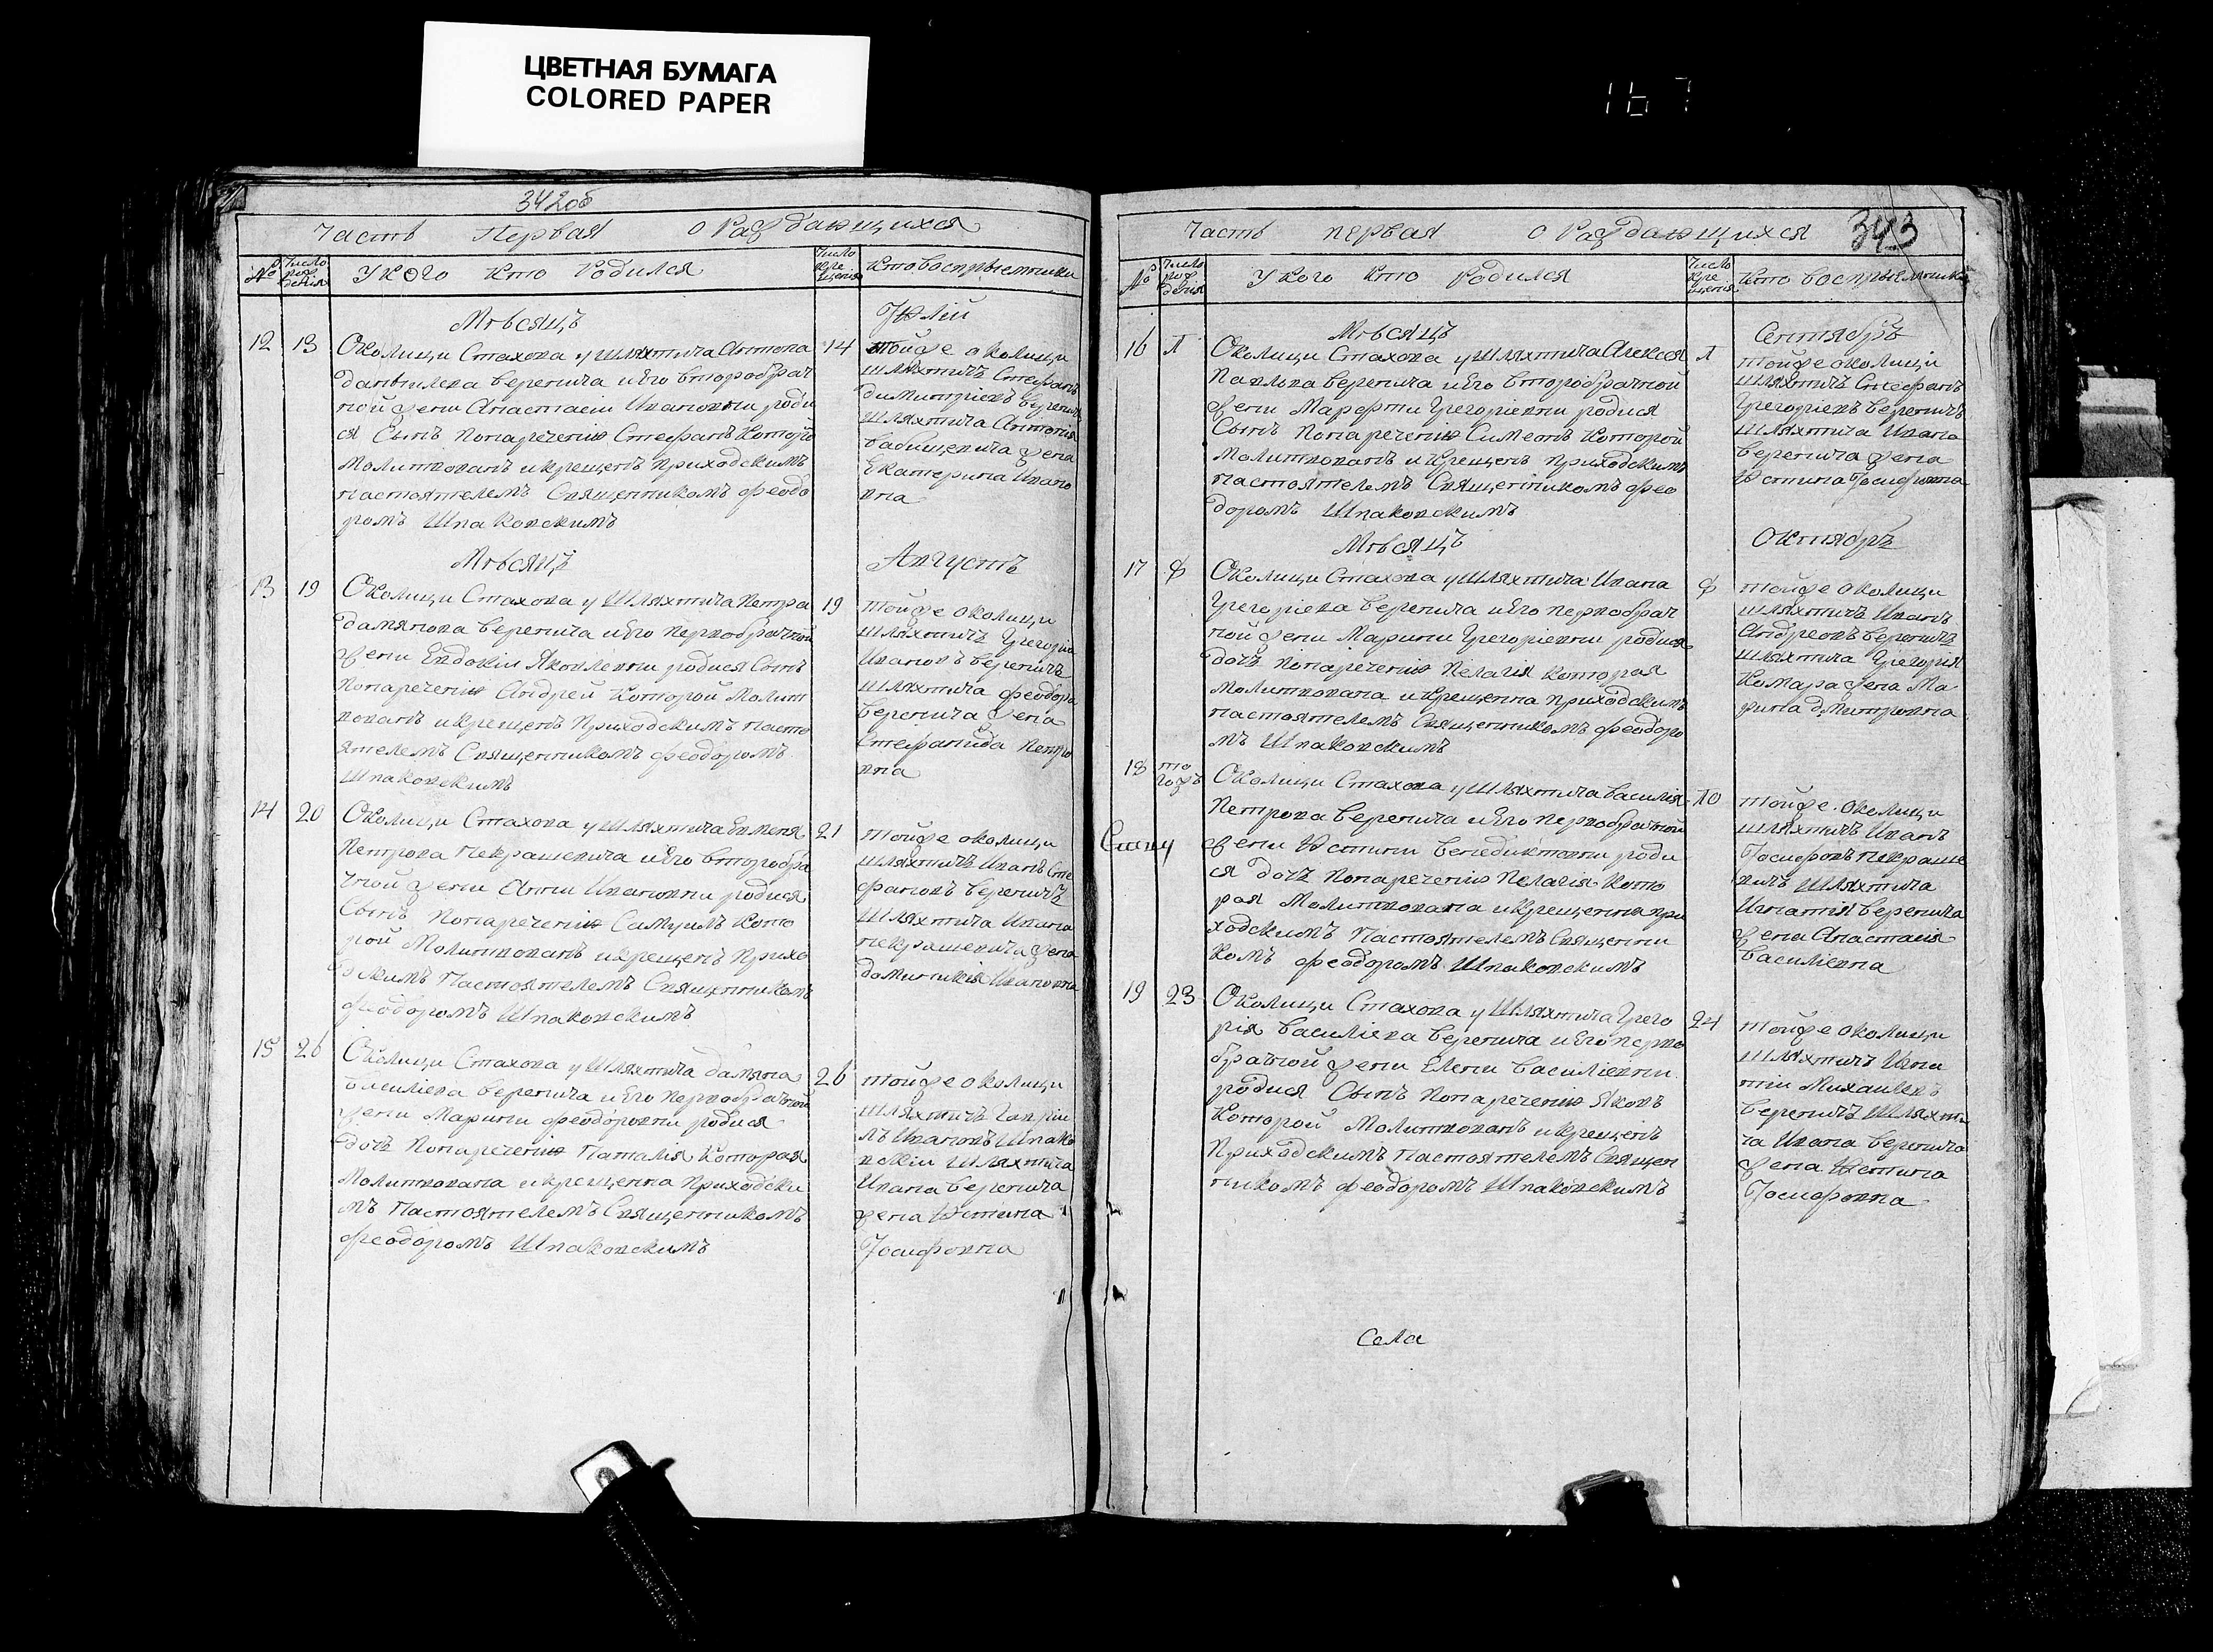 ЦВЕТНАЯ БУМАГА
COLORED PAPER
167
342об
Часть Первая о Раждающихся
№ Число рождения У кого кто Родился Число крещения Кто восприемники
Мѣсяцъ Юлій
12 13 Околицы Стахова у шляхтича Антона
данiилева веренича и его второбрач
ной жены Анастасіи Ивановны роди
ся Сынъ Понареченію Стефанъ Которо
Молитвованъ и крещенъ приходскимъ
настоятелемъ Священникомъ Феодо
ромъ Шпаковскимъ
14 тойже околицы
шляхтичъ Стефанъ
димитріевъ веренич
шляхтича Антонія
бабищевича жена
Екатерина Ивано
вна
Мѣсяцъ Августъ
13 19 Околицы Стахова у Шляхтича Петра
дамянова веренича и его первобрачной
жены Евдокіи Яковлевны родися Сынъ
Понареченію Андрей Которой Молит
вованъ и крещенъ Приходскимъ Насто
ятелемъ Священникомъ Феодоромъ
Шпаковскимъ
19 тойже околицы
шляхтичъ Григорій
Ивановъ вереничъ
шляхтича Феодора
веренича жена
Стефанида Петро
вна
14 20 Околицы Стахова у Шляхтича
Петрова Некрашевича и его второбра
чной жены Анны Ивановны родися
Сынъ Понареченію Самуилъ Кото
рой Молитвованъ и крещенъ Прихо
дскимъ Настоятелемъ Священникомъ
Феодоромъ Шпаковскимъ
21 тойже околицы
шляхтичъ Иванъ Сте
фановъ вереничъ
Шляхтича Ивана
некрашевича жена
доминикія Ивановна
15 26 Околицы Стахова у Шляхтича дамяна
василіева веренича и его Первобрачной
жены Марины Феодоровны родися
дочь Понареченію Наталія Которая
Молитвована и крещенна Приходски
мъ Настоятелемъ Священникомъ
Феодоромъ Шпаковскимъ
26 тойже околицы
шляхтичъ Гаврии
лъ Ивановъ Шпако
вскіи Шляхтича
Ивана веренича
жена Юстина
Іосифовна
343
Часть первая о Раждающихся
№ Число рождения У кого кто Родился Число крещения Кто восприемники
Мѣсяцъ Сентябрь
16 1 Околицы Стахова у Шляхтича Алексея
Павлова веренича и его второбрачной
жены Марефты Григоріевны родися
Сынъ Понареченію Симеонъ Которой
Молитвованъ и Крещенъ приходскимъ
настоятелемъ Священникомъ Фео
доромъ Шпаковскимъ
1 тойже околицы
шляхтичъ Стефанъ
Григоріевъ вереничъ
шляхтича Ивана
веренича жена
Юстина Іосифовна
Мѣсяцъ Октябрь
17 Околицы Стахова у Шляхтича Ивана
Григоріева веренича и его первобрач
ной жены Марины Григоріевны родися
дочь Понареченію Пелагія которая
Молитвована и Крещенна приходскимъ
настоятелемъ Священникомъ Феодоро
мъ Шпаковскимъ
тойже околицы
шляхтичъ Иванъ
Андреовъ вереничъ
шляхтича Григорія
Комара жена Ма
рина дмитровна
18 тогожъ Околицы Стахова у Шляхтича Василія
Петрова веренича и его первобрачной
жены Юстины бенедиктовны роди
ся дочь Понареченію Пелагія Кото
рая Молитвована и крещенна при
ходскимъ Настоятелемъ Священни
комъ Феодоромъ Шпаковскимъ
10 тойже околицы
шляхтичъ Иванъ
Іосифовъ некраше
вичъ Шляхтича
Игнатія веренича
жена Анастасія
василіевна
19 23 Околицы Стахова у Шляхтича Григо
рія Василіева веренича и его перво
брачной жены Елены василіевны
родися Сынъ Понареченію Яковъ
Которой Молитвованъ и крещенъ
Приходскимъ Настоятелемъ Священ
никомъ Феодоромъ Шпаковскимъ
24 тойже околицы
шляхтичъ Игна
тій Михаиловъ
вереничъ Шляхти
ча Ивана веренича
жена Юстина
Іосифовна
Села